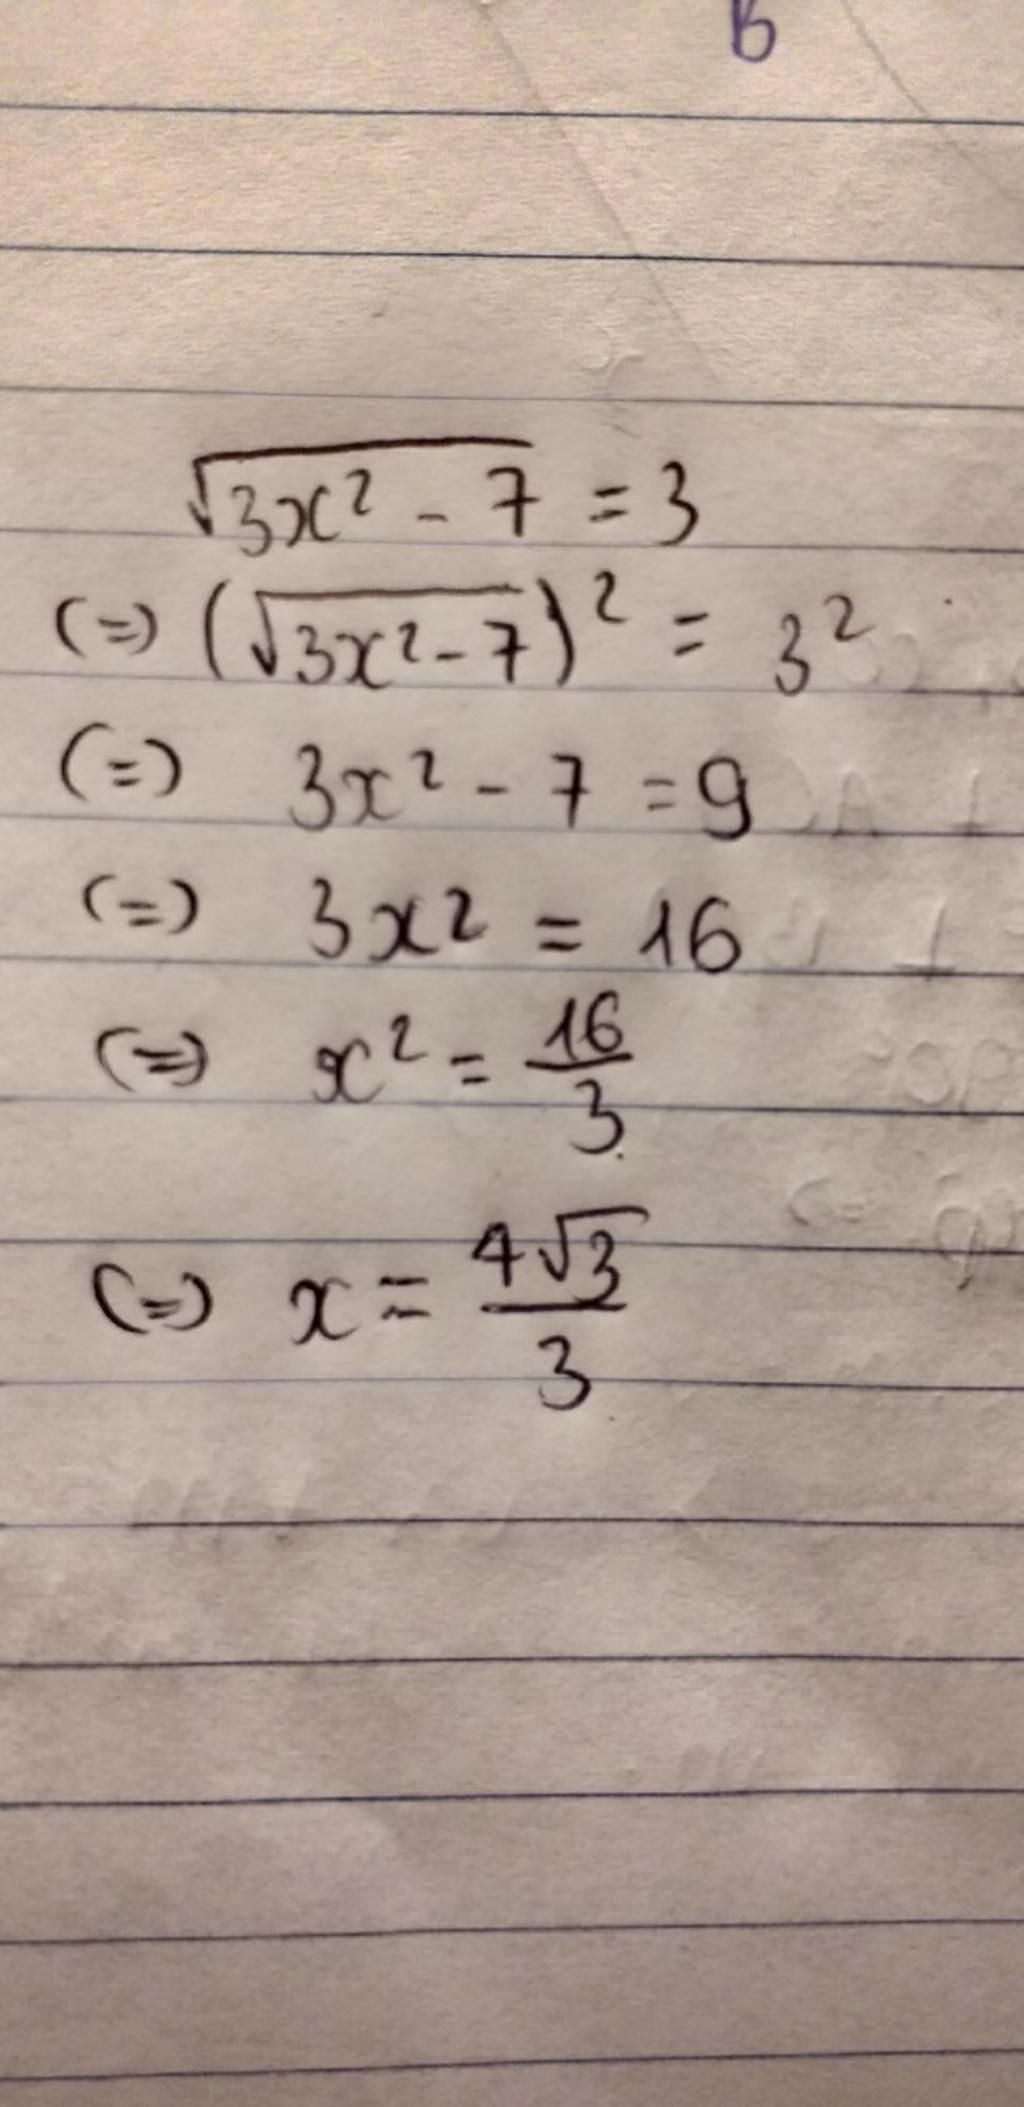 B
√(3x² - 7) = 3
(=) (√(3x² - 7))² = 3²
(=) 3x² - 7 = 9
(=) 3x² = 16
(=) x² = 16/3
(=) x = 4√3/3